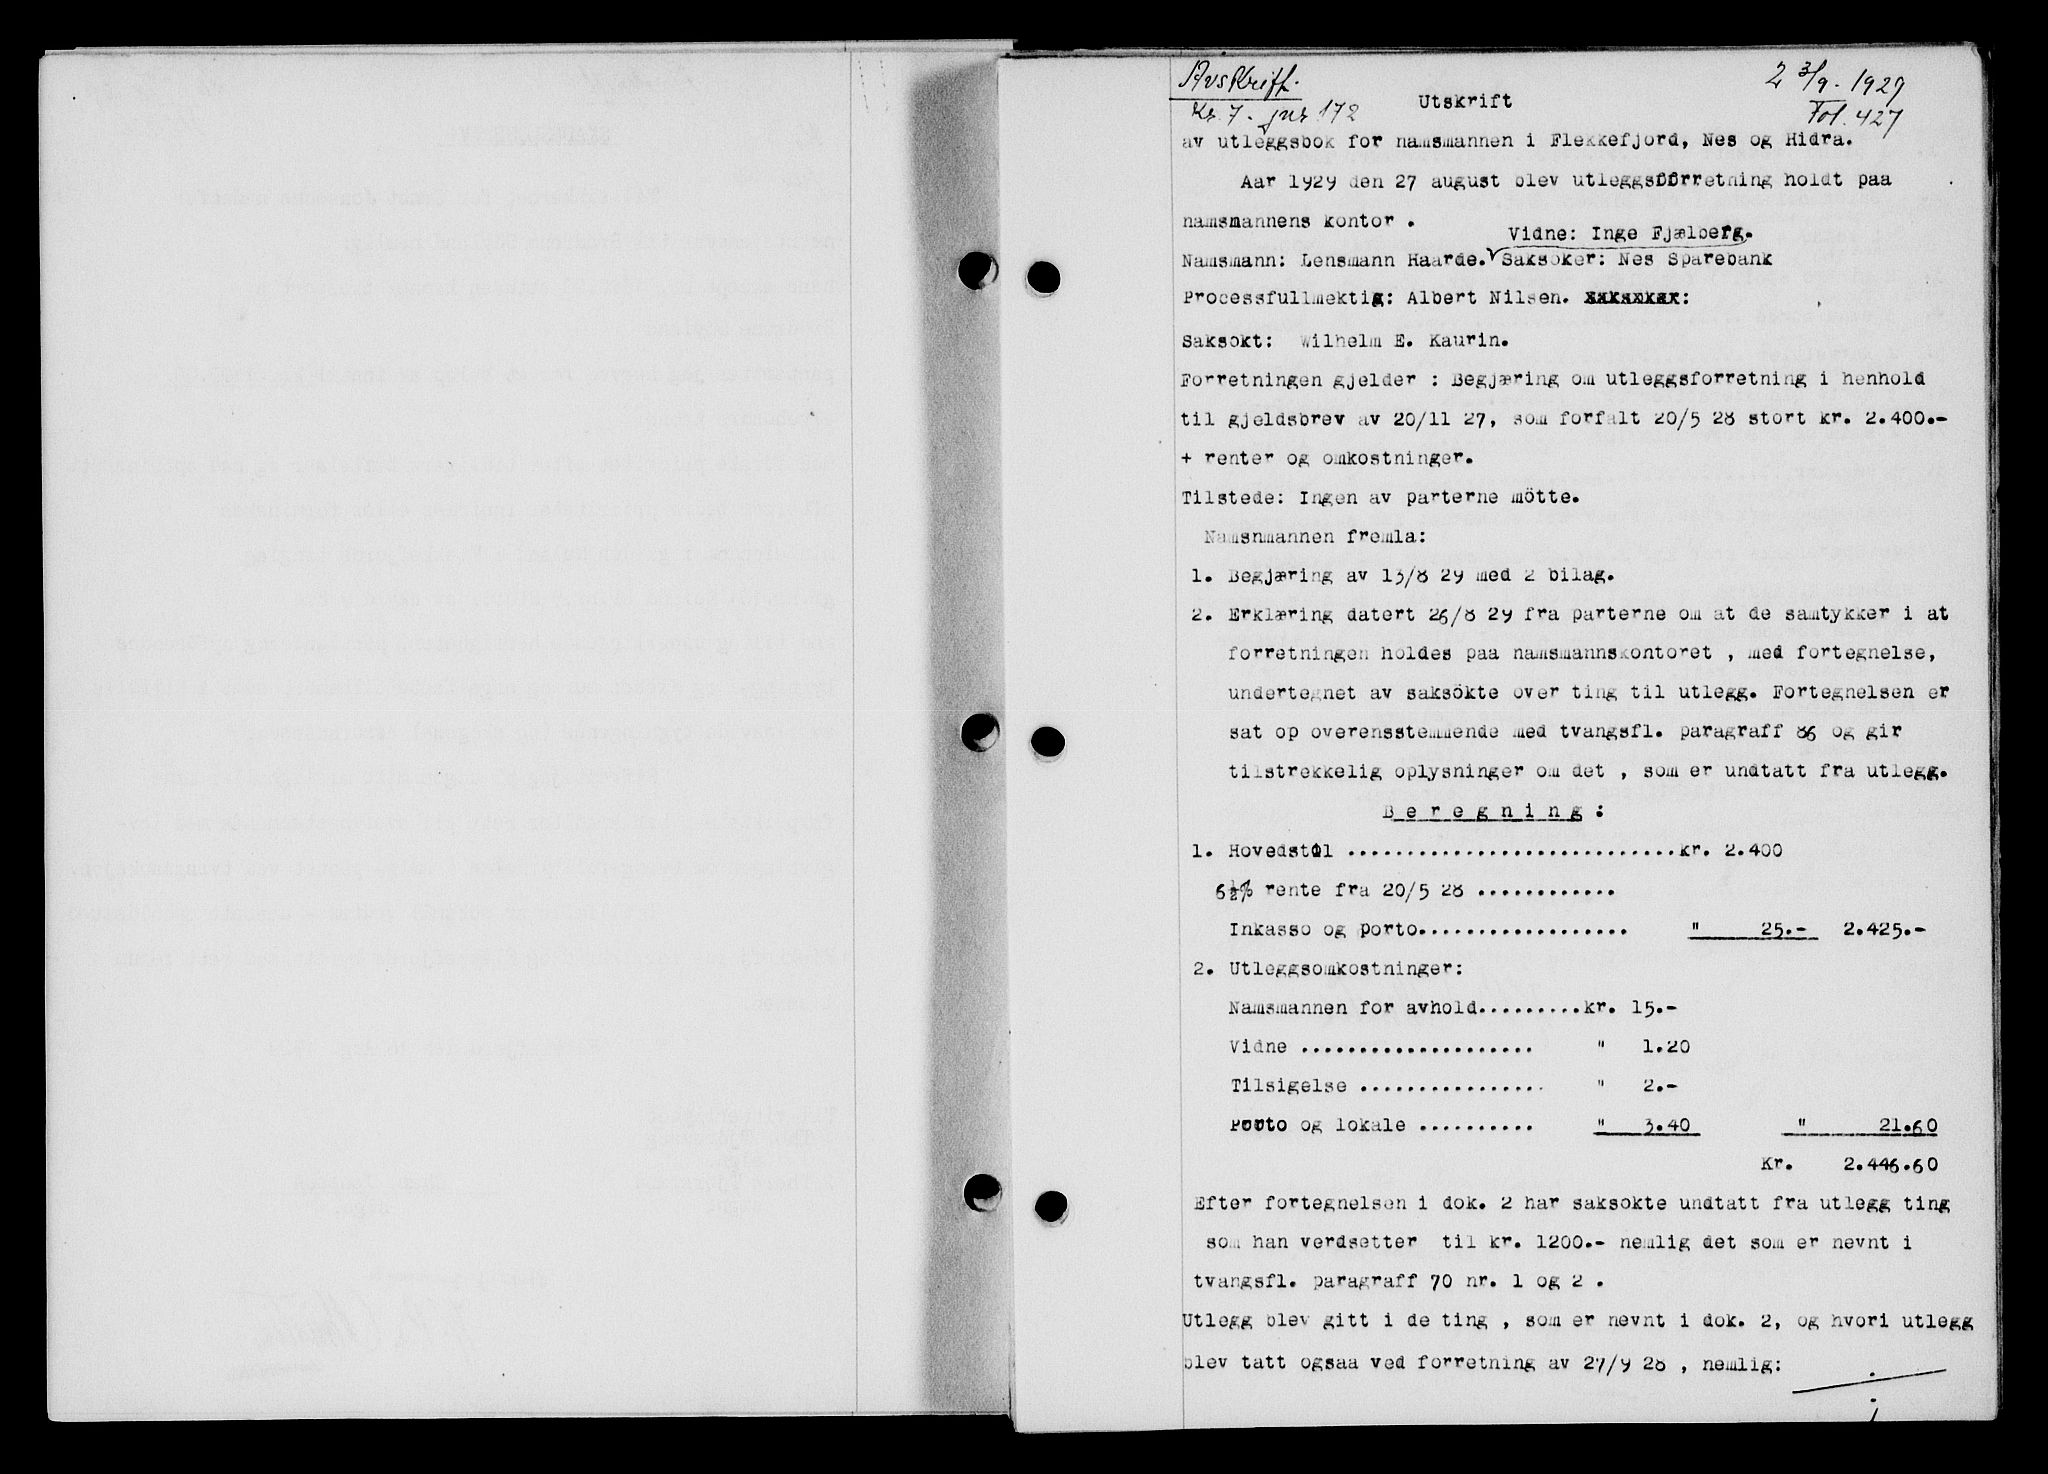 Avskrift.
Kr. 7.- jnr. 172
2 3/9. 1929
Fol. 427
Utskrift
av utleggsbok for namsmannen i Flekkefjord, Nes og Hidra.
Aar 1929 den 27 august blev utleggsforretning holdt paa
namsmannens kontor .
Vidne: Inge Fjælberg.
Namsmann: Lensmann Haarde. Saksoker: Nes Sparebank
Processfullmektig: Albert Nilsen. Saksoker:
Saksokt: Wilhelm E. Kaurin.
Forretningen gjelder : Begjæring om utleggsforretning i henhold
til gjeldsbrev av 20/11 27, som forfalt 20/5 28 stort kr. 2.400.-
+ renter og omkostninger.
Tilstede: Ingen av parterne mötte.
Namsnmannen fremla:
1. Begjæring av 13/8 29 med 2 bilag.
2. Erklæring datert 26/8 29 fra parterne om at de samtykker i at
forretningen holdes paa namsmannskontoret , med fortegnelse,
undertegnet av saksökte over ting til utlegg. Fortegnelsen er
sat op overensstemmende med tvangsfl. paragraff 86 og gir
tilstrekkelig oplysninger om det , som er undtatt fra utlegg.
Beregning :
1. Hovedstol ............................kr. 2.400
6½% rente fra 20/5 28 ............
Inkasso og porto.................. " 25.- 2.425.-
2. Utleggsomkostninger:
Namsmannen for avhold.........kr. 15.-
Vidne .................... " 1.20
Tilsigelse ................ " 2.-
Porto og lokale .......... " 3.40 " 21.60
Kr. 2.446.60
Efter fortegnelsen i dok. 2 har saksokte undtatt fra utlegg ting
som han verdsetter til kr. 1200.- nemlig det som er nevnt i
tvangsfl. paragraff 70 nr. 1 og 2 .
Utlegg blev gitt i de ting , som er nevnt i dok. 2, og hvori utlegg
blev tatt ogsaa ved forretning av 27/9 28 , nemlig: